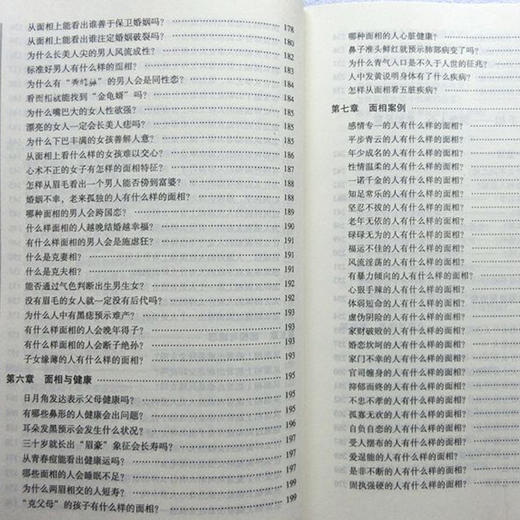 从面相上能看出谁善于保卫婚姻吗? 178
从面相上能看出谁注定婚姻破裂吗? 180
为什么长美人尖的男人风流成性? 182
标准好男人有什么样的面相? 183
为什么有“ ”的男人会是同性恋? 184
看面相就能找到“金龟婿”吗? 184
为什么嘴巴大的女人性欲强? 185
漂亮的女人一定会长美人痣吗? 185
为什么下巴丰满的女孩善解人意? 186
从面相上看什么样的女孩难以交心? 187
心术不正的女子有怎样的面相特征? 187
怎样从眉毛看出一个男人能否傍到富婆? 188
婚姻不幸,老来孤独的人有什么样的面相? 189
哪种面相的男人会跨国恋? 189
什么样面相的人越晚结婚越幸福? 190
有什么样面相的男人会是施虐狂? 191
什么是克妻相? 191
什么是克夫相? 191
能否通过气色判断出生男生女? 192
没有眉毛的女人就一定没有后代吗? 192
为什么人中有黑痣预示难产? 193
有什么样面相的人会晚年得子? 194
有什么样面相的人会断子绝孙? 194
子女缘薄的人有什么样的面相? 194
第六章 面相与健康 195
日月角发达表示父母健康吗? 195
有哪些鼻形的人健康会出问题? 195
耳朵发黑预示会发生什么状况? 196
三十岁就长出“眉豪”象征会长寿吗? 197
从青春痘能看出健康运吗? 197
哪些面相的人会睡眠不足? 198
为什么两眉相交的人短寿? 199
“克父母”的孩子有什么样的面相? 199
哪种面相的人心脏健康?
鼻子准头鲜红就预示肺部病变了吗?
为什么青气入口是不久于人世的征兆?
人中发黄说明身体有了什么疾病?
怎样从面相看五脏疾病?
第七章 面相案例
感情专一的人有什么样的面相?
平步青云的人有什么样的面相?
年少成名的人有什么样的面相?
性情温柔的人有什么样的面相?
一诺千金的人有什么样的面相?
知足常乐的人有什么样的面相?
坚忍不拔的人有什么样的面相?
老年无依的人有什么样的面相?
碌碌无为的人有什么样的面相?
福运不佳的人有什么样的面相?
风流淫荡的人有什么样的面相?
有暴力倾向的人有什么样的面相?
心狠手辣的人有什么样的面相?
体弱短命的人有什么样的面相?
虚伪阴险的人有什么样的面相?
家财破败的人有什么样的面相?
婚恋坎坷的人有什么样的面相?
家门不幸的人有什么样的面相?
官司缠身的人有什么样的面相?
抑郁而终的人有什么样的面相?
不忠不孝的人有什么样的面相?
孤寡无欢的人有什么样的面相?
自负自恋的人有什么样的面相?
受人摆布的人有什么样的面相?
爱逞能的人有什么样的面相?
是非不断的人有什么样的面相?
固执强硬的人有什么样的面相?